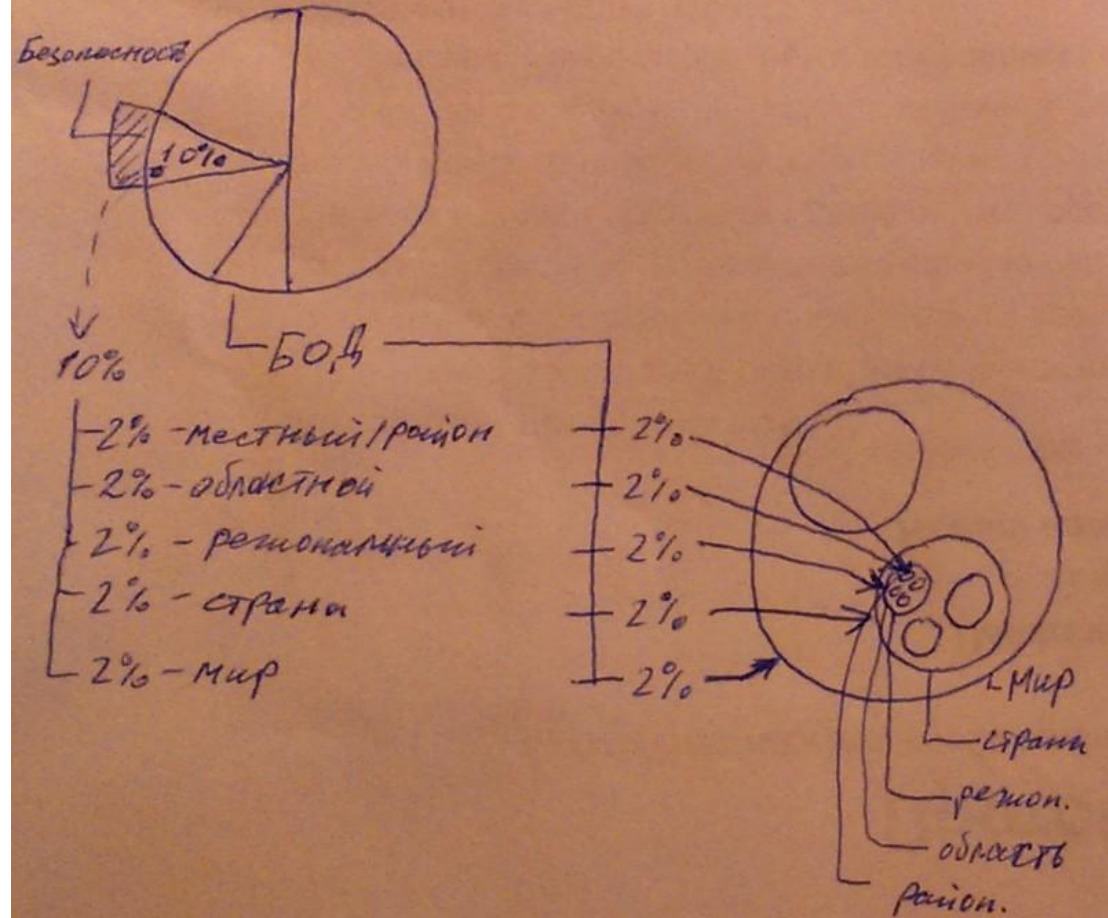 Безопасность
10%
БОД
10%
2% - местный/район
2% - областной
2% - региональный
2% - страна
2% - мир
2%
2%
2%
2%
2%
Мир
страна
регион.
область
район.